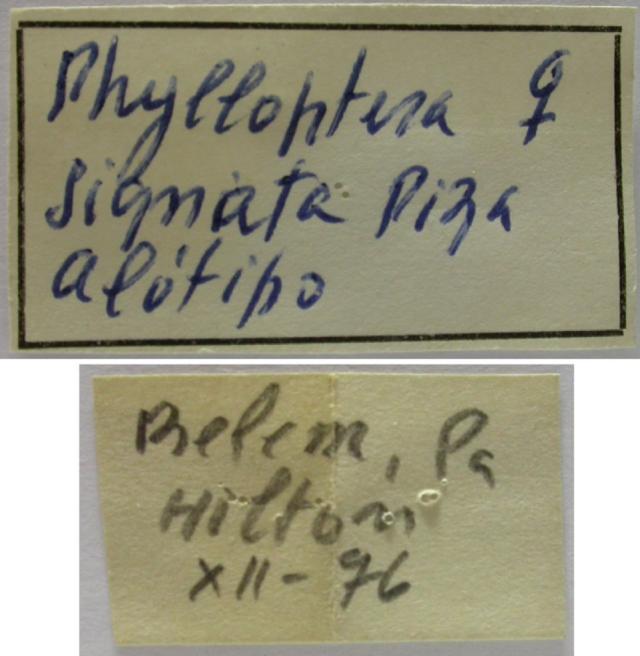 Phylloptera ♀
signata Piza
alótipo
Belem, Pa
Hilton
XII-76